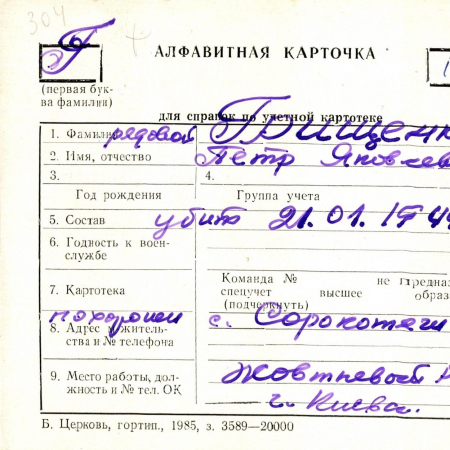 304
Г
АЛФАВИТНАЯ КАРТОЧКА
(первая бук-
ва фамилии)
для справок по учетной картотеке
1. Фамилия рядовой Грищенк
2. Имя, отчество Петр Яковлев
3. 4.
Год рождения Группа учета
5. Состав убит 21.01.1944
6. Годность к воен-
службе
Команда № не предназ
7. Картотека спецучет высшее образ
(подчеркнуть)
похоронен с. Сорокотяги
8. Адрес житель-
ства и № телефона
9. Место работы, дол-
жность и № тел. ОК
Жовтневый
г. Киева.
Б. Церковь, гортип., 1985, з. 3589—20000